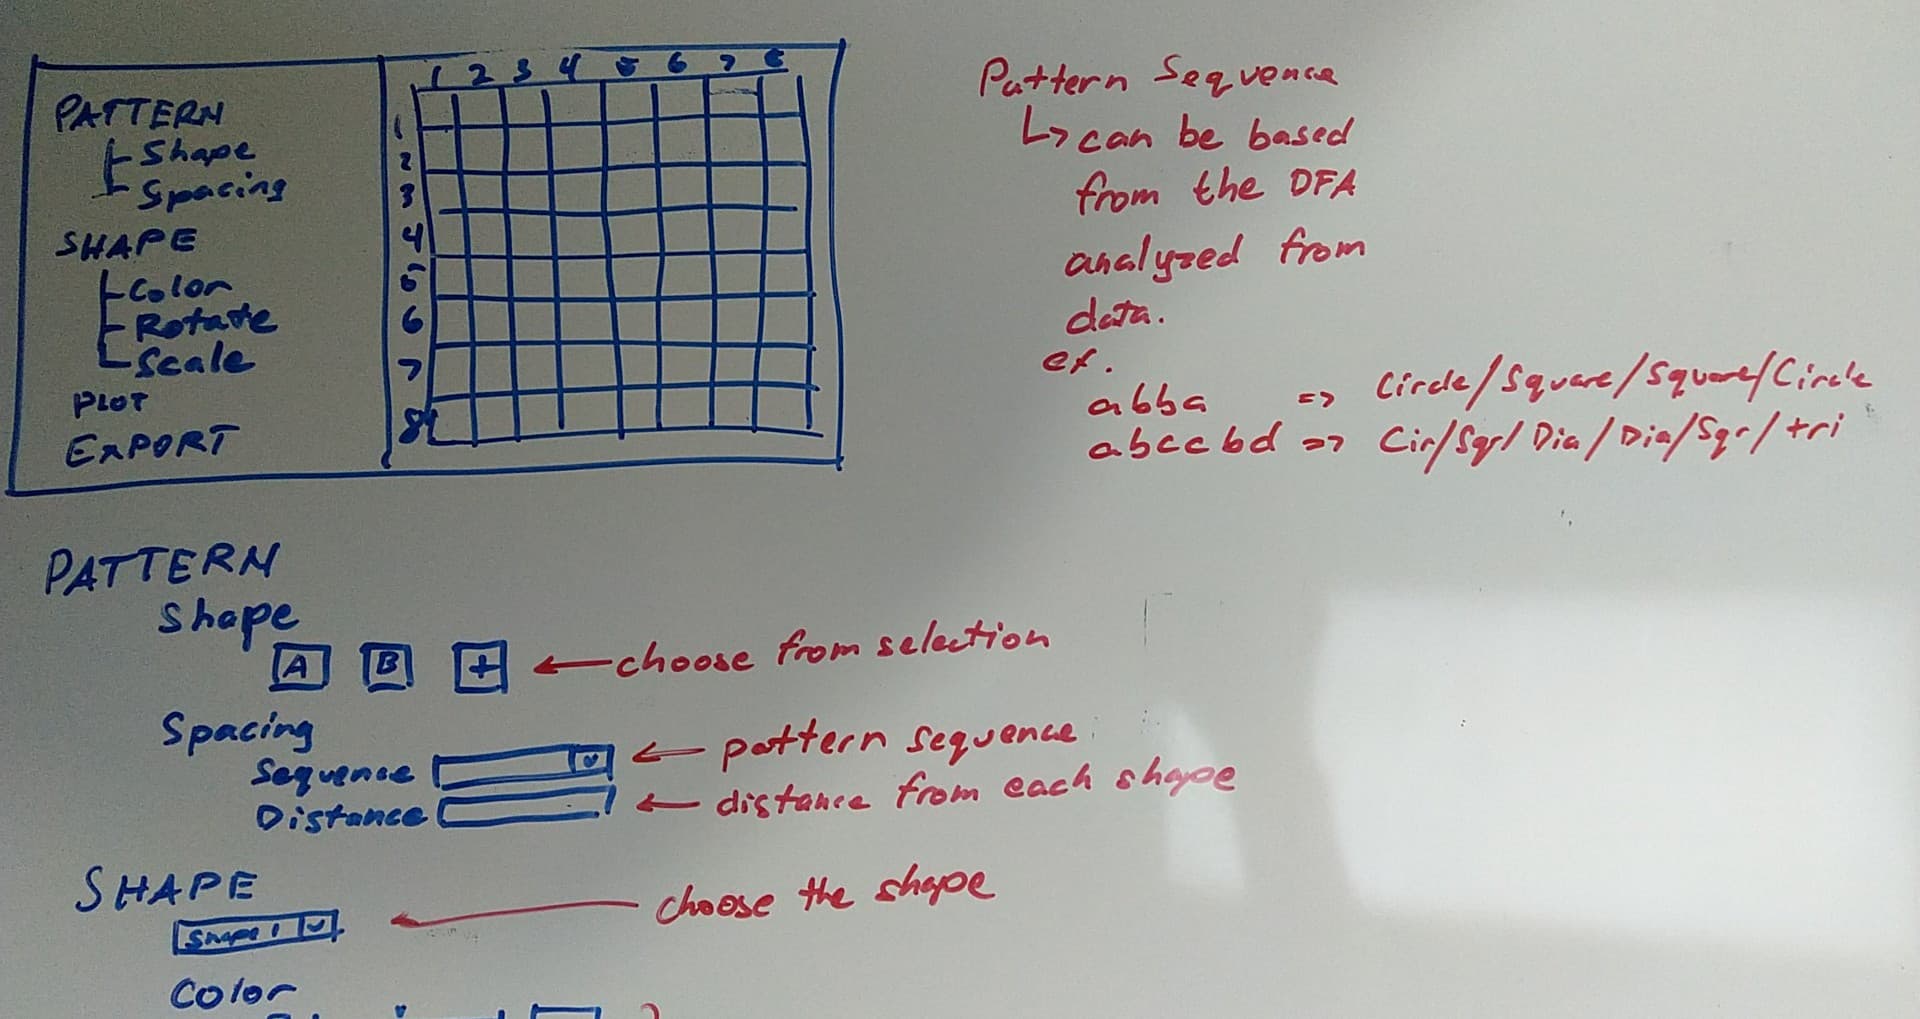 PATTERN
Shape
Spacing
SHAPE
Color
Rotate
Scale
PLOT
EXPORT
1 2 3 4 5 6 7 8
1
2
3
4
5
6
7
8
Pattern Sequence
↳ can be based
from the DFA
analyzed from
data.
ex.
abba => Circle/Square/Square/Circle
abccbd => Cir/Sqr/Dia/Dia/Sqr/tri
PATTERN
Shape
A B + ← choose from selection
Spacing
Sequence ← pattern sequence
Distance ← distance from each shape
SHAPE
Shape 1 ← choose the shape
Color